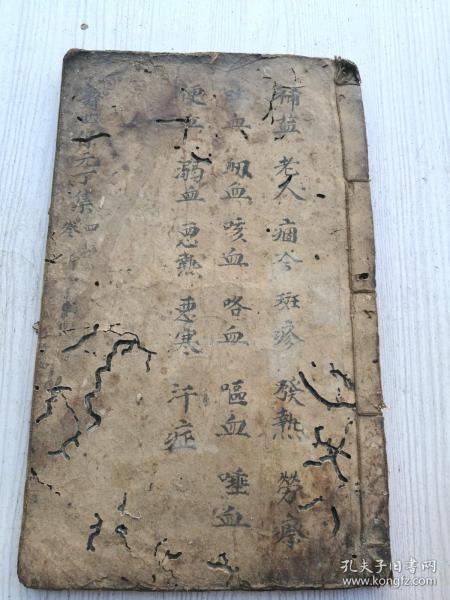 補益 老人 痼冷 斑疹 發熱 勞瘵
吐血 衂血 咳血 咯血 嘔血 唾血
便血 溺血 惡熱 惡寒 汗症
壽世保元丁集 四卷
孔夫子旧书网
www.kongfz.com